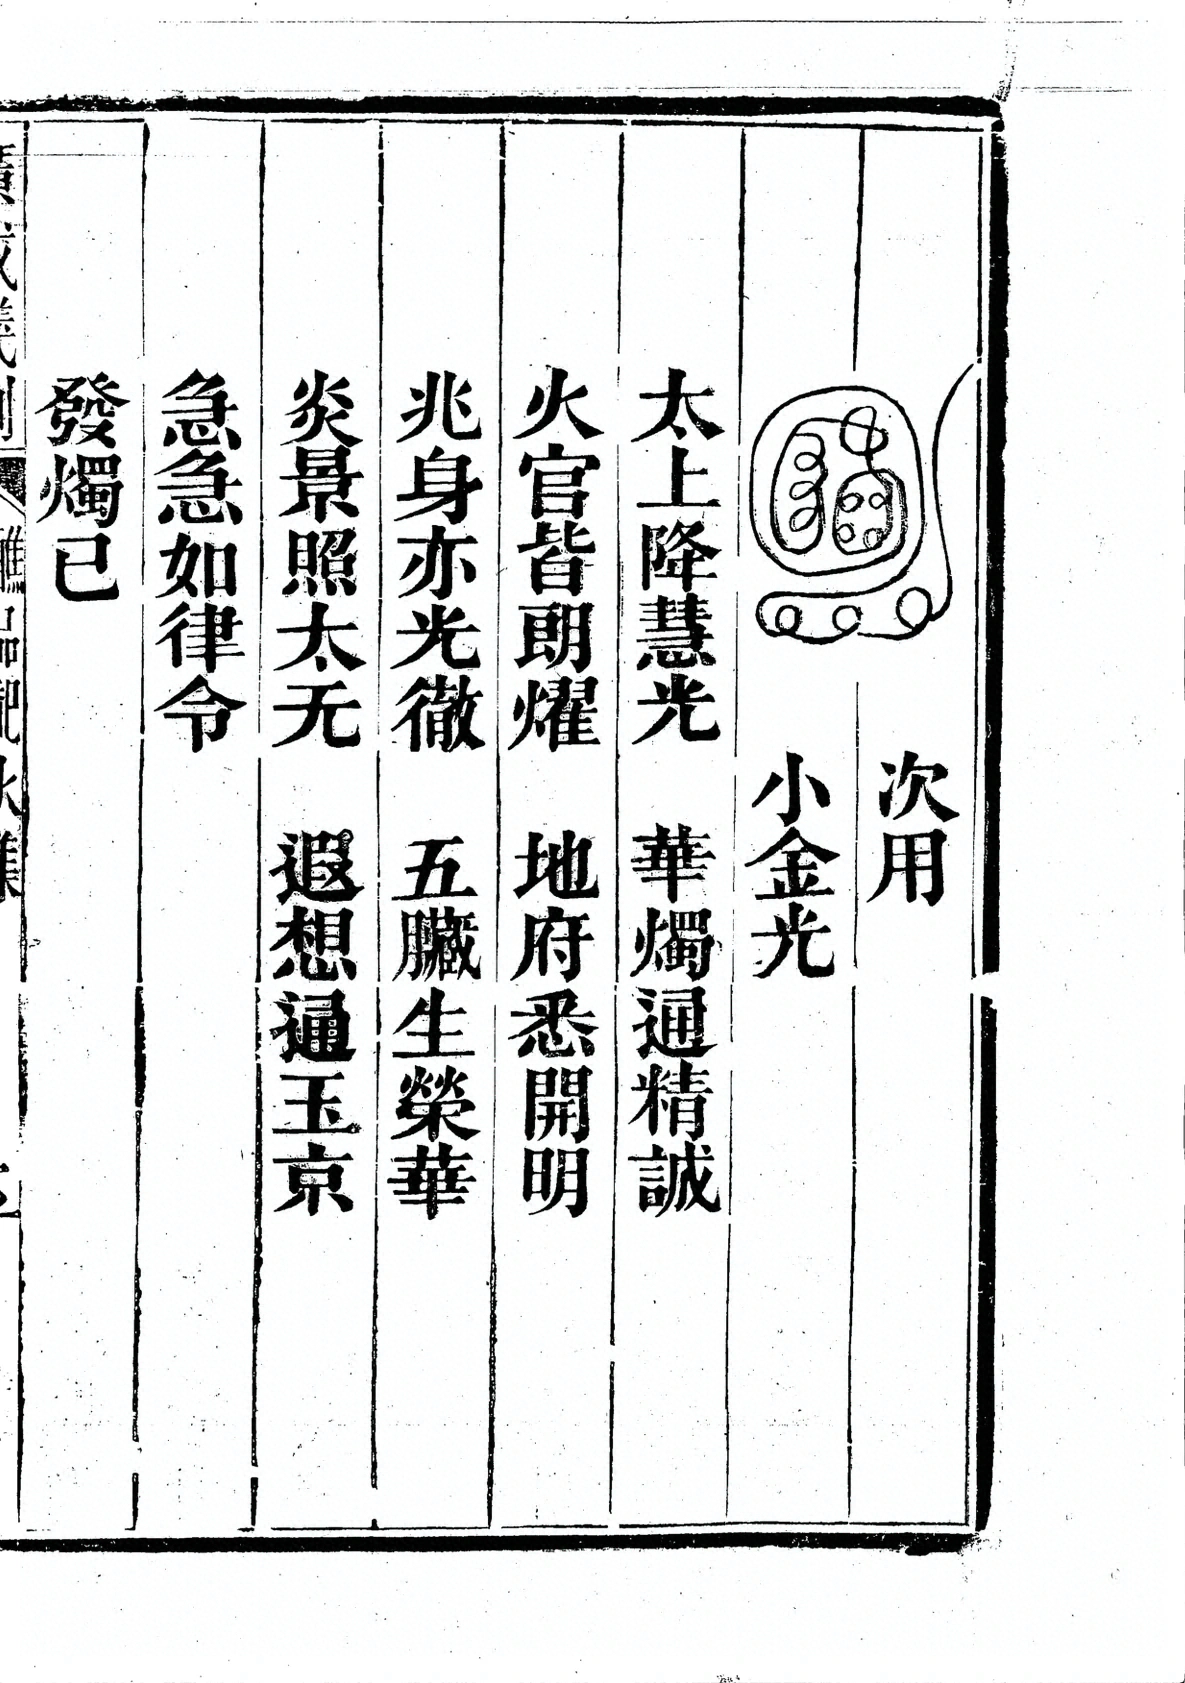 次用
小金光
太上降慧光　華燭通精誠
火官皆朗燿　地府悉開明
兆身亦光徹　五臟生榮華
炎景照太无　遐想通玉京
急急如律令
發燭已